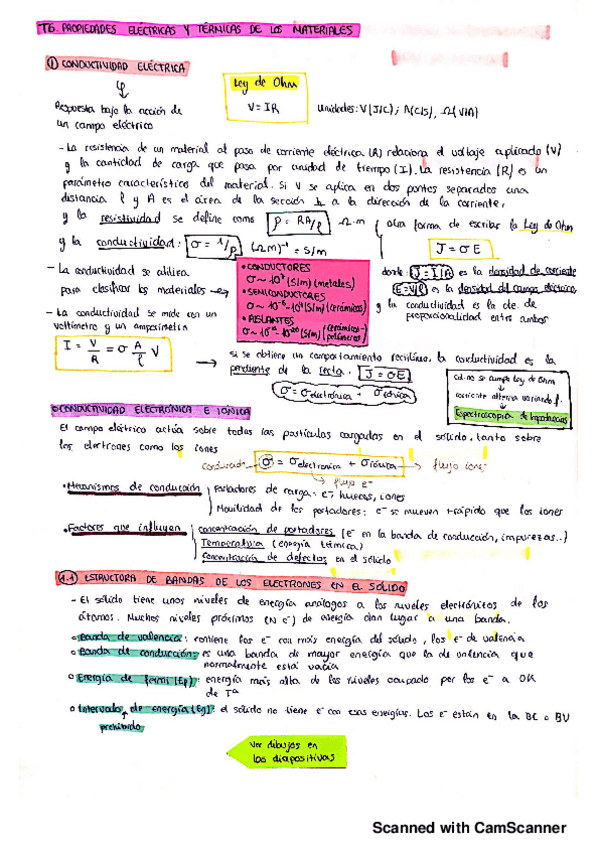 T6. PROPIEDADES ELÉCTRICAS Y TÉRMICAS DE LOS MATERIALES
① CONDUCTIVIDAD ELÉCTRICA
Ley de Ohm
V = IR
unidades: V (J/C); A(C/s), Ω(V/A)
Respuesta bajo la acción de
un campo eléctrico
- La resistencia de un material al paso de corriente eléctrica (R) relaciona el voltaje aplicado (V)
y la cantidad de carga que pasa por unidad de tiempo (I). La resistencia (R) es un
parámetro característico del material. Si V se aplica en dos puntos separados una
distancia l y A es el área de la sección ⊥ a la dirección de la corriente,
y la resistividad se define como ρ = RA/l Ω·m
y la conductividad: σ = 1/ρ (Ω m)⁻¹ = S/m
otra forma de escribir la Ley de Ohm
J = σ E
- La conductividad se utiliza
para clasificar los materiales →
• CONDUCTORES
(S/m) (metales)
• SEMICONDUCTORES
(S/m) (cerámicos)
• AISLANTES
(S/m) (cerámicos-
polímeros)
donde J = I/A es la densidad de corriente
E = V/l es la densidad del campo eléctrico
y la conductividad es la cte. de
proporcionalidad entre ambos
- La conductividad se mide con un
voltímetro y un amperímetro
I = V/R = σ A/l V
→ si se obtiene un comportamiento rectilíneo, la conductividad es la
pendiente de la recta. J = σE
σ = σ electrónica + σ iónica
no se cumple Ley de Ohm
corriente alterna variando f.
Espectroscopía de Impedancias
CONDUCTIVIDAD ELECTRÓNICA E IÓNICA
El campo eléctrico actúa sobre todas las partículas cargadas en el sólido, tanto sobre
los electrones como los iones
σ = σ electrónica + σ iónica → flujo iones
→ flujo e⁻
• Mecanismos de conducción
Portadores de carga: e⁻, huecos, iones
Movilidad de los portadores: e⁻ se mueven + rápido que los iones
• Factores que influyen
Concentración de portadores (e⁻ en la banda de conducción, impurezas..)
Temperatura (energía térmica)
Concentración de defectos en el sólido
1.1) ESTRUCTURA DE BANDAS DE LOS ELECTRONES EN EL SÓLIDO
- El sólido tiene unos niveles de energía análogos a los niveles electrónicos de los
átomos. Muchos niveles próximos (N e⁻) de energía dan lugar a una banda.
• Banda de valencia: contiene los e⁻ con más energía del sólido, los e⁻ de valencia
• Banda de conducción: es una banda de mayor energía que la de valencia que
normalmente está vacía
• Energía de fermi (Ef): energía más alta de los niveles ocupado por los e⁻ a 0K
de Tª
• Intervalo de energía (Eg): el sólido no tiene e⁻ con esas energías. Los e⁻ están en la BC o BV
prohibido
Ver dibujos en
las diapositivas
Scanned with CamScanner